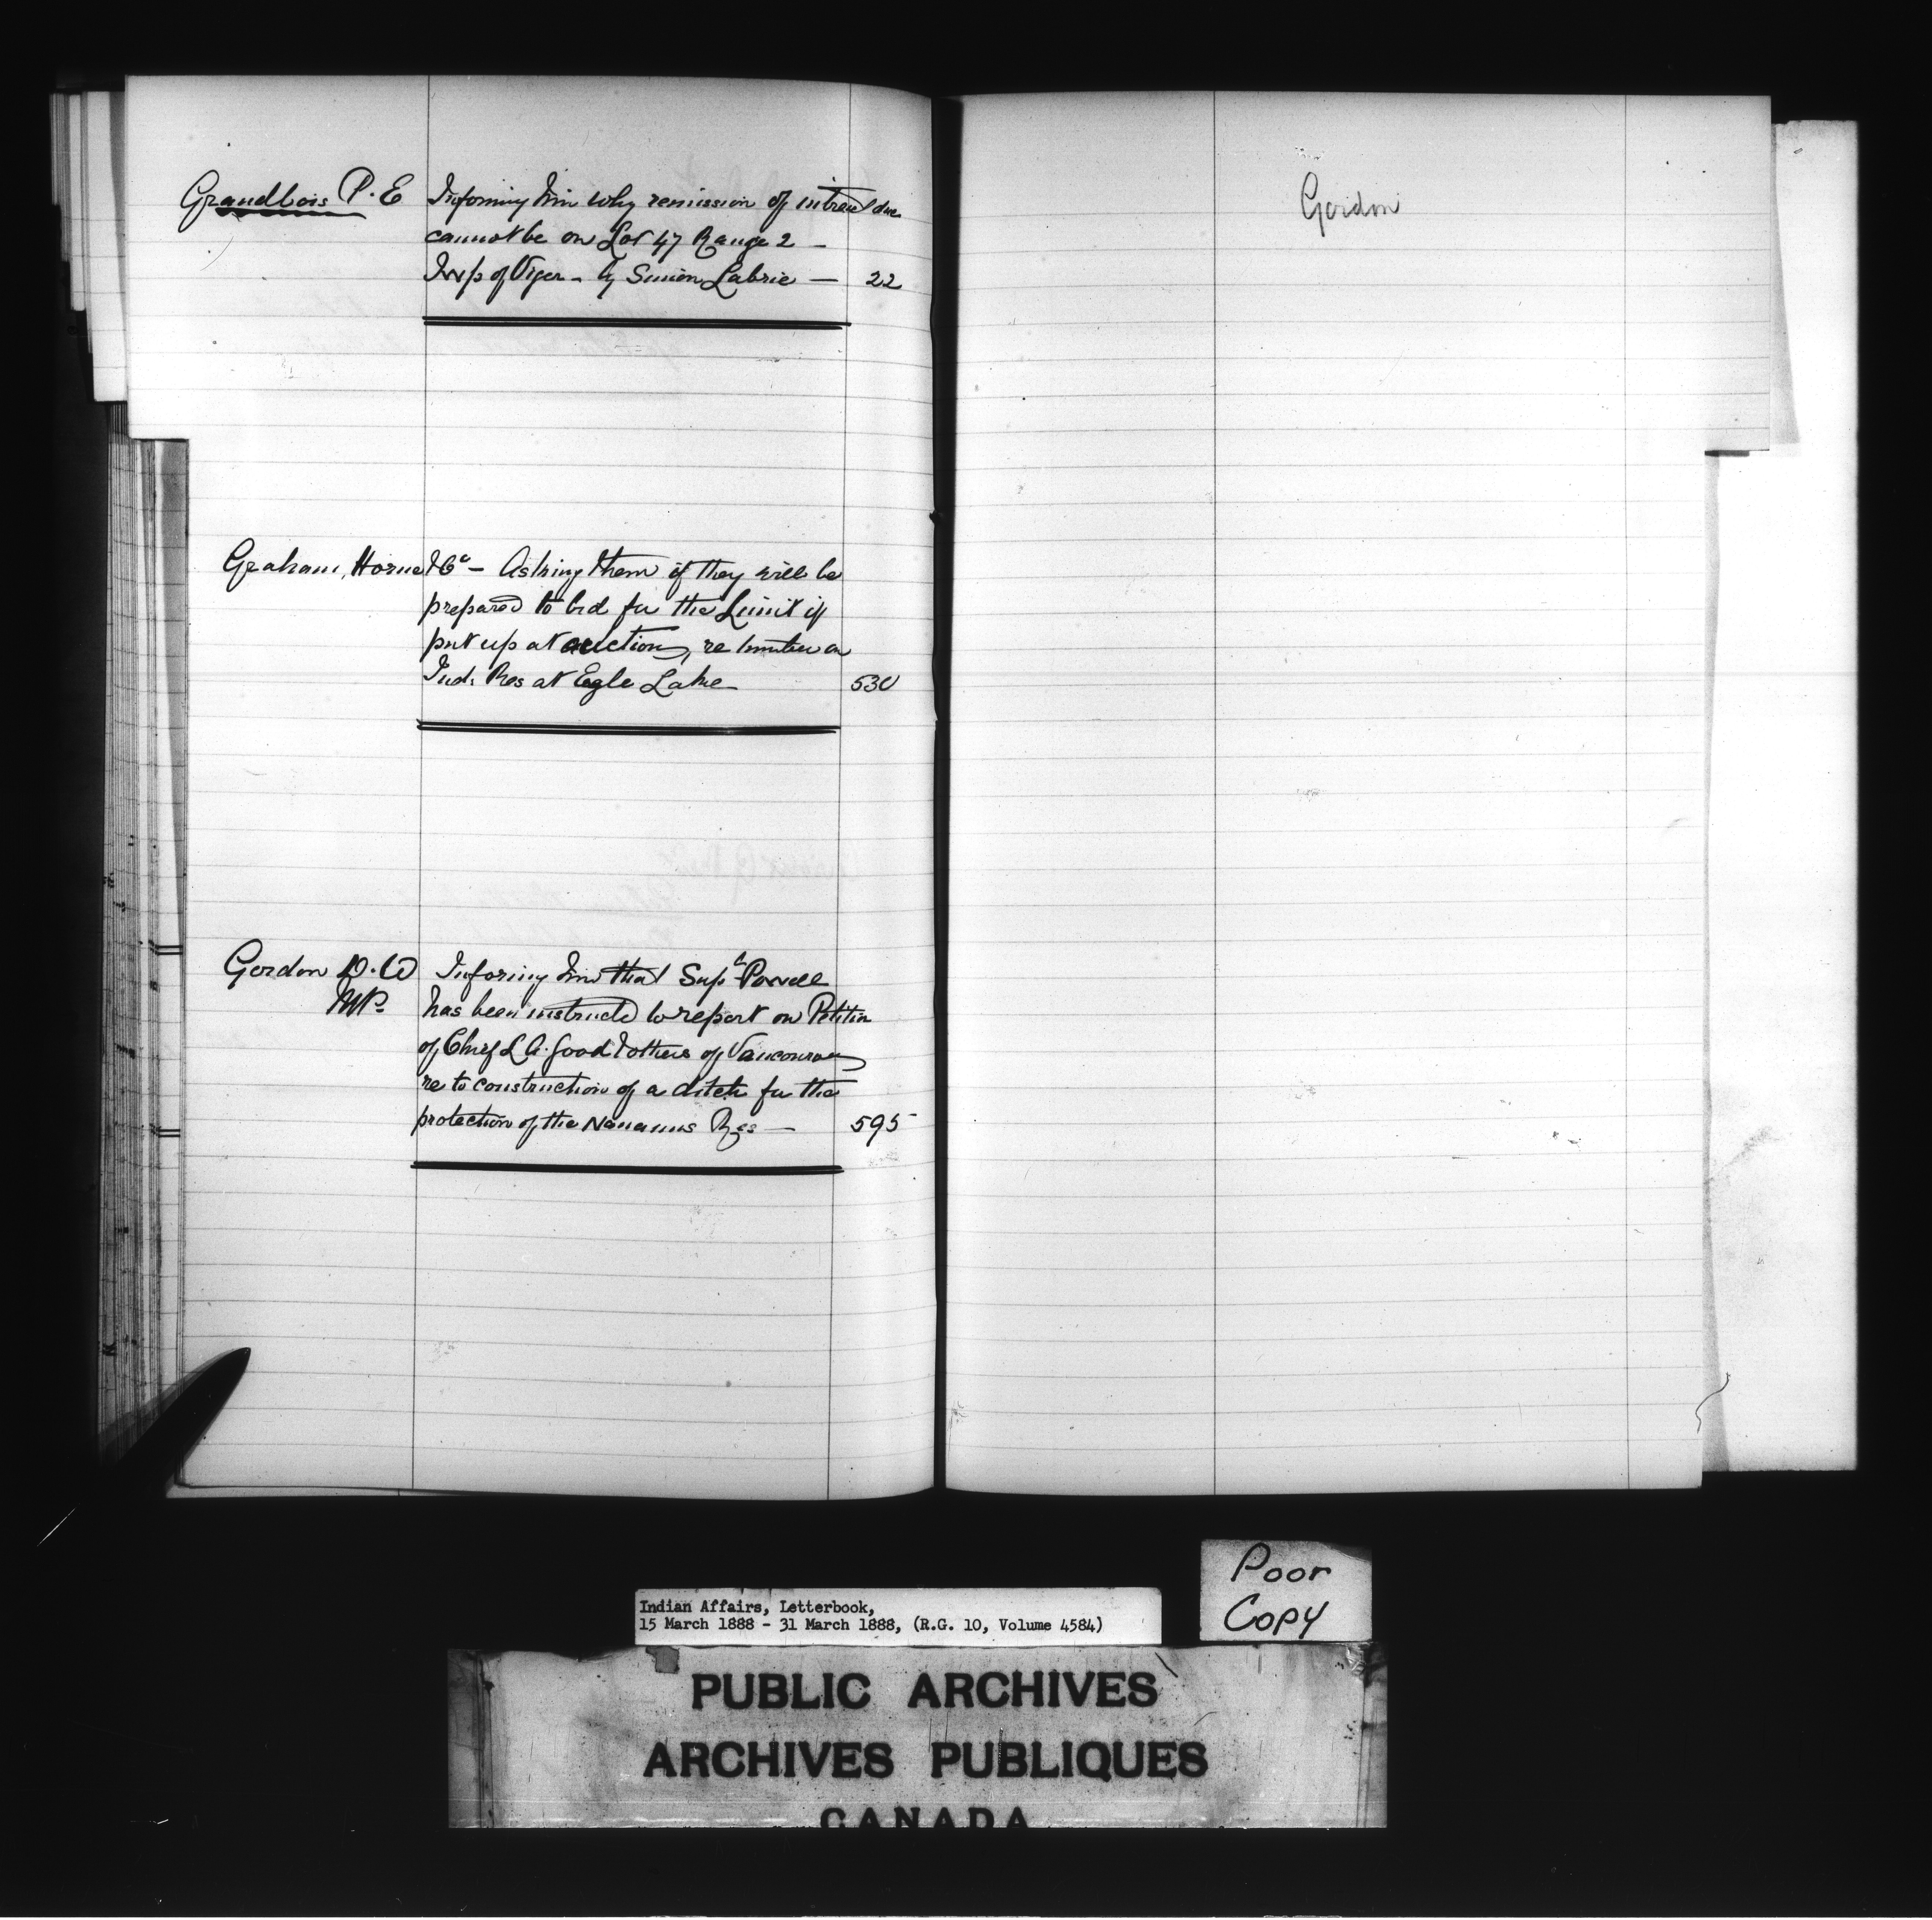 Grandbois P. E Informing him why remission of intrest due
cannot be on Lot 47 Range 2 —
Twp of Viger - by Simion Labrie — 22
Graham, Horne & Co - Asking them if they will be
prepared to bid for the Limit if
put up at auction, re timber on
Ind. Res at Egle Lake 530
Gordon D. W Inforing him that Supt Powell
MP. has been instructd to report on Petition
of Chief L A. Good & others of Vancouver
re to construction of a ditch for the
protection of the Nanaimo Res — 595
Gordon
Poor
Copy
Indian Affairs, Letterbook,
15 March 1888 - 31 March 1888, (R.G. 10, Volume 4584)
PUBLIC ARCHIVES
ARCHIVES PUBLIQUES
CANADA